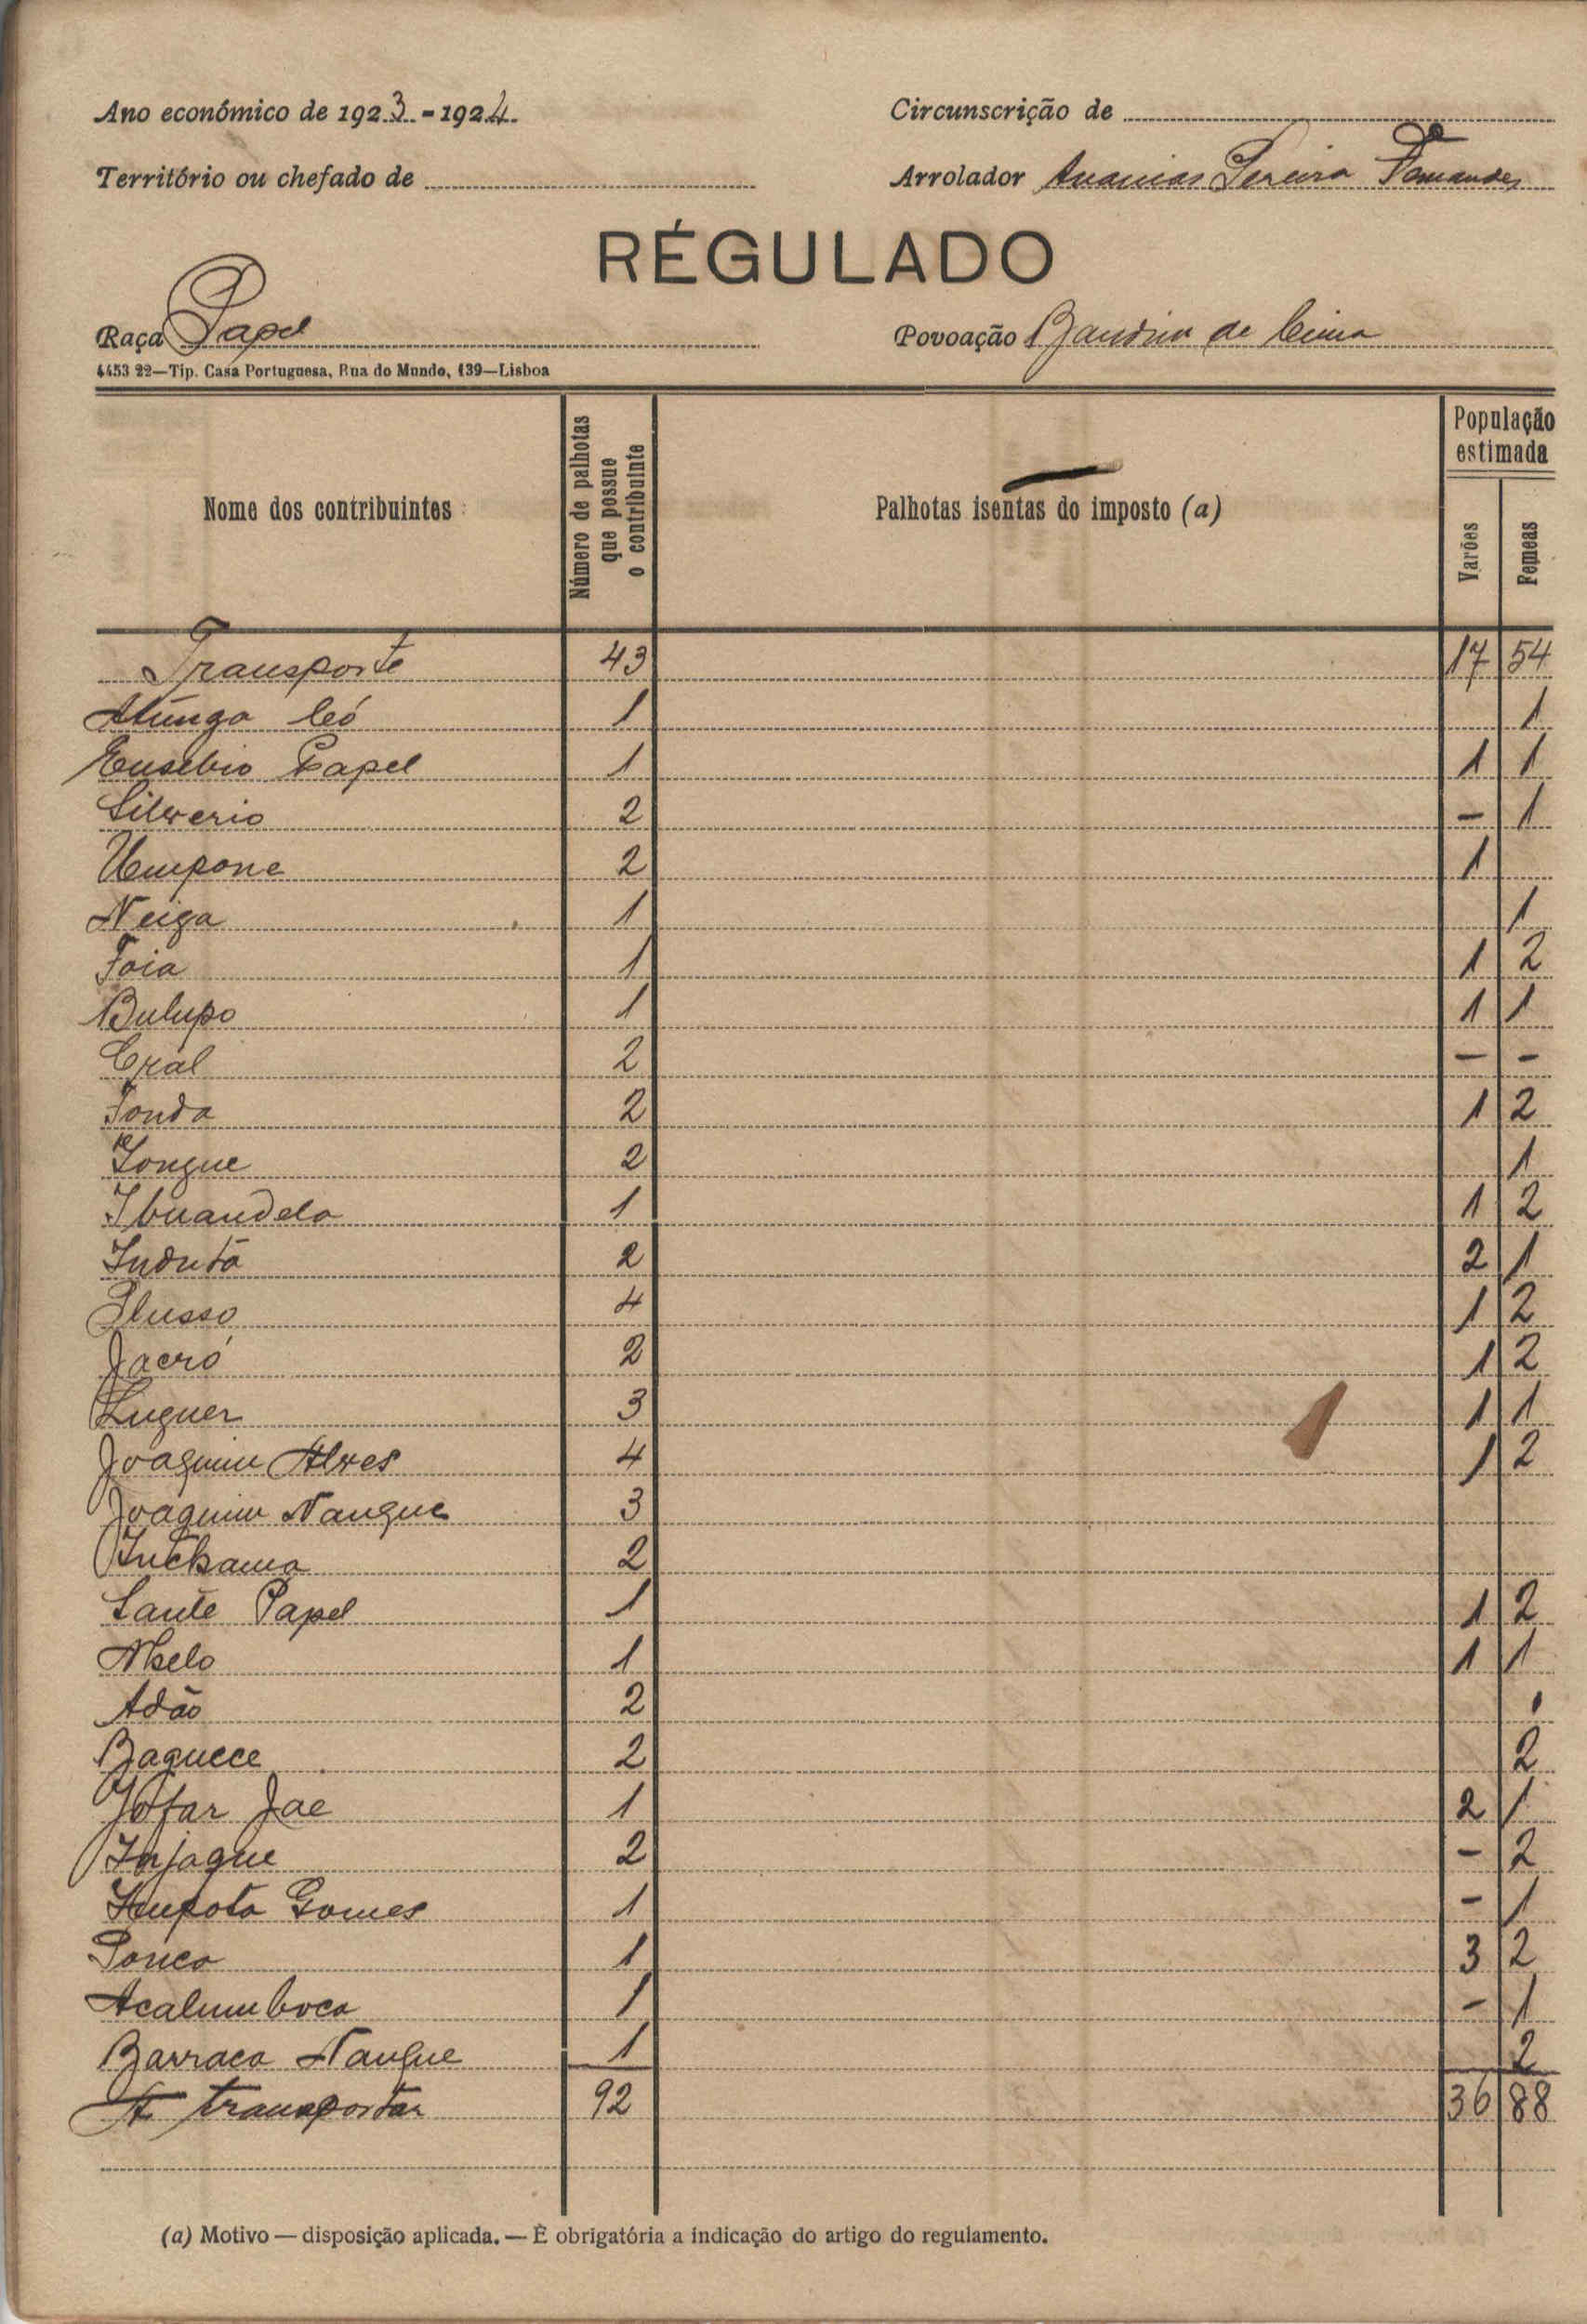 Ano económico de 1923-1924
Circunscrição de
Território ou chefado de
Arrolador Ananias Pereira Fernandes
RÉGULADO
Raça Papel
Povoação Bandim de Cima
4453 22—Tip. Casa Portuguesa, Rua do Mundo, 139—Lisboa
Nome dos contribuintes
Número de palhotas que possue o contribuinte
Palhotas isentas do imposto (a)
População estimada
Varões
Femeas
Transporte 43 17 54
Atúnga Có 1 1
Eusébio Papel 1 1 1
Silverio 2 - 1
Umpone 2 1
Neiga 1 1
Foia 1 1 2
Bulupo 1 1 1
Cral 2 - -
Fonda 2 1 2
Iongue 2 1
Ibuandelo 1 1 2
Induta 2 2 1
Plusso 4 1 2
Jacró 2 1 2
Luguer 3 1 1
Joaquim Alves 4 1 2
Joaquim Nangue 3
Intchama 2
Santé Papel 1 1 2
2 Adão
Baguece 2 2
Jofar Jae 1 2 1
Injaque 2 - 2
Impota Gomes 1 - 1
Ponca 1 3 2
Acalumboca 1 - 1
Barraca Nangue 1 2
A transportar 92 36 88
(a) Motivo — disposição aplicada. — È obrigatória a indicação do artigo do regulamento.